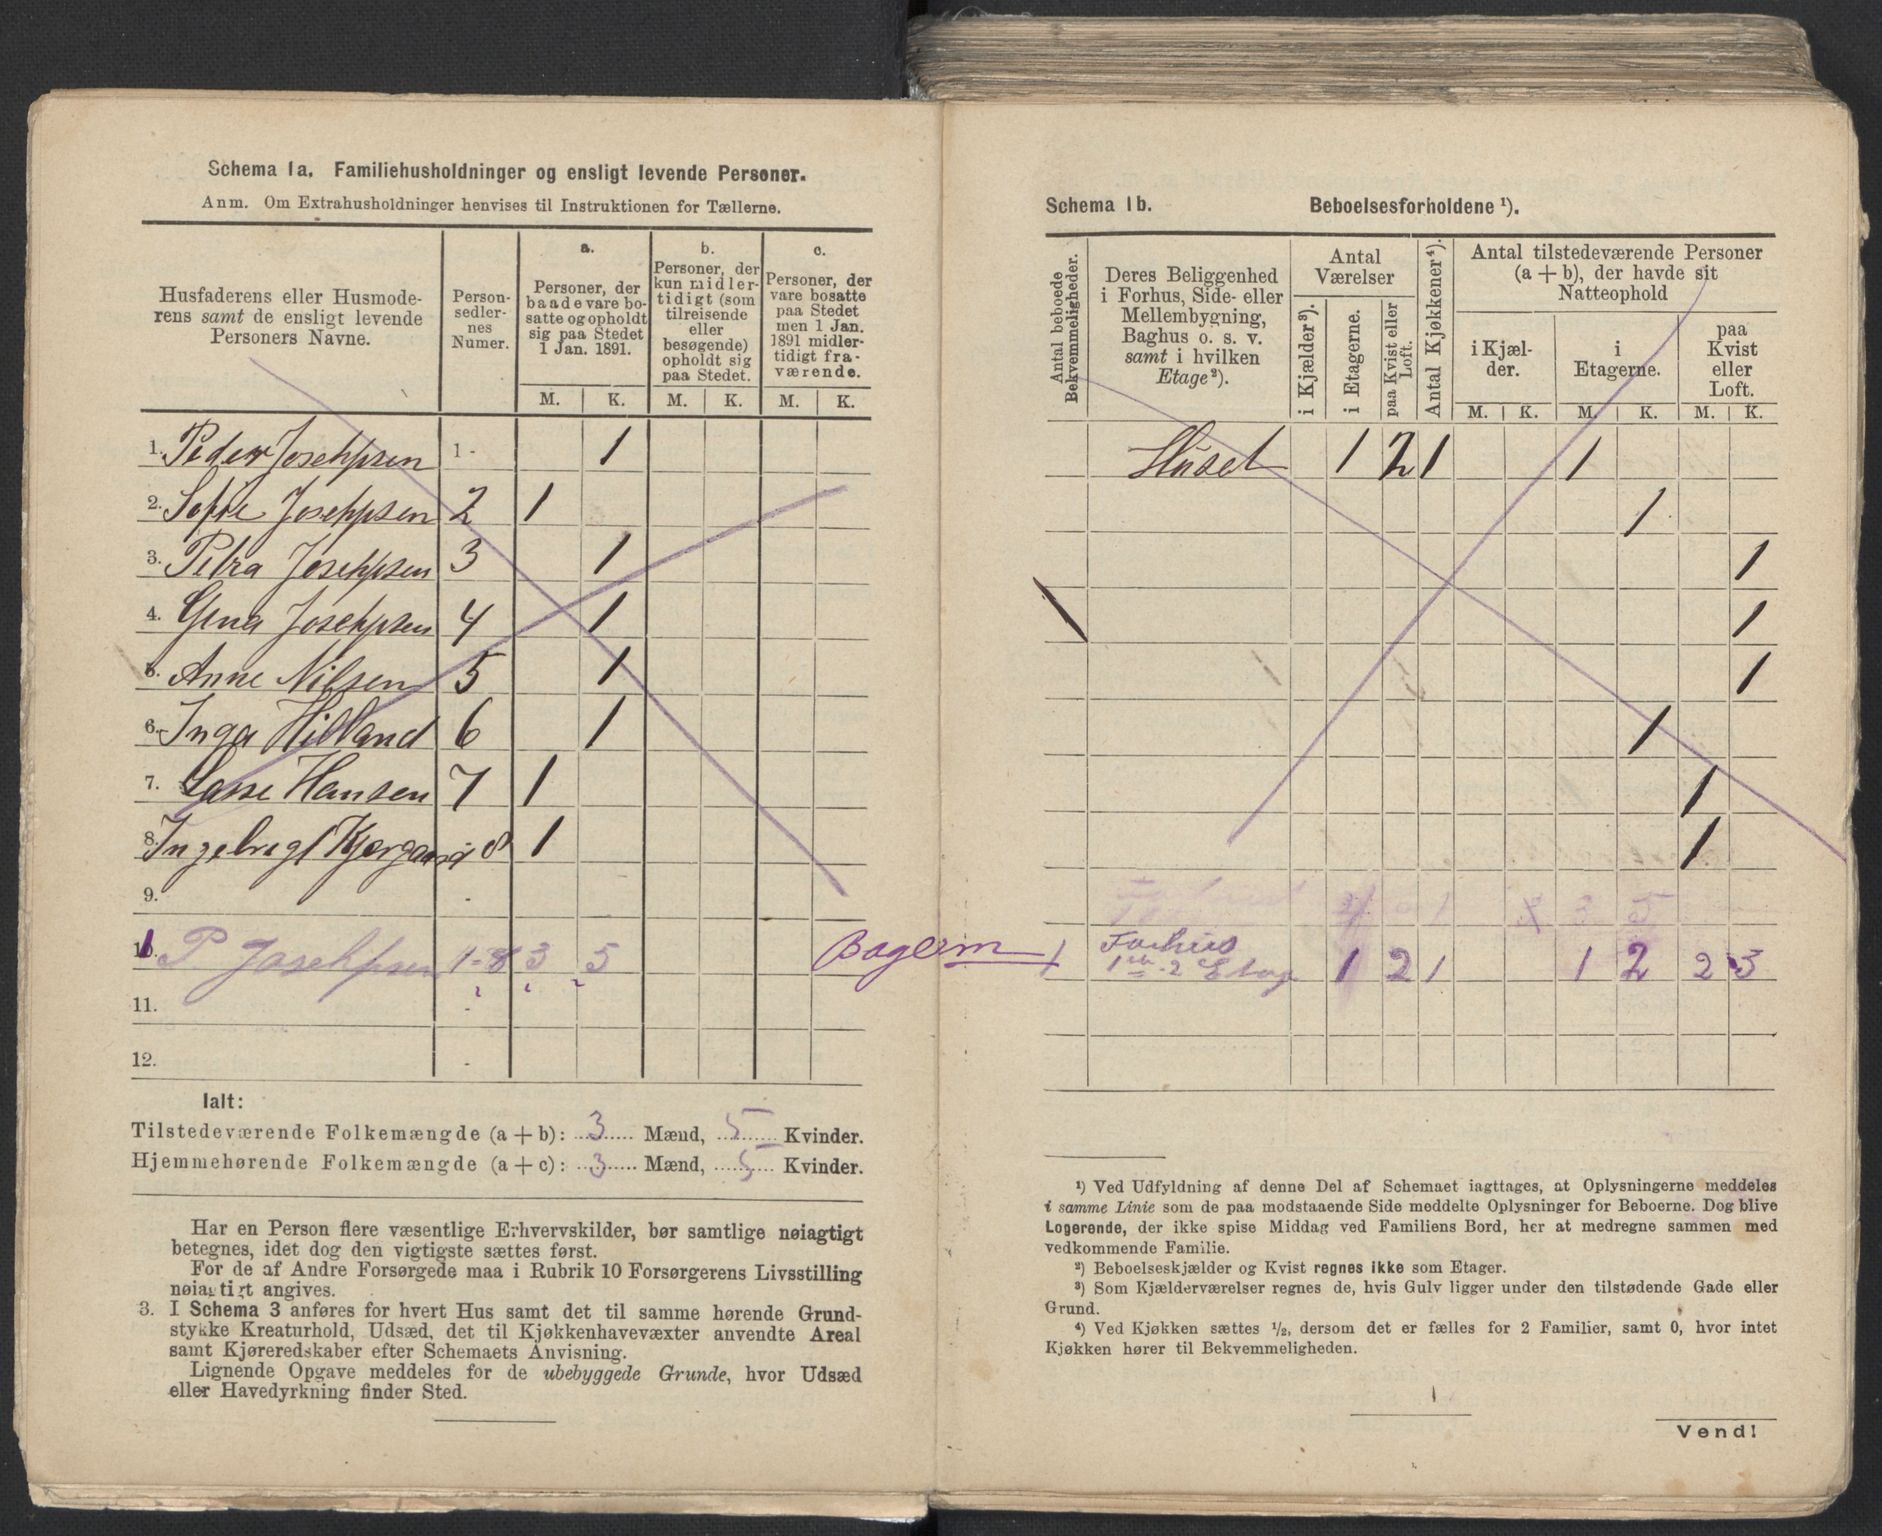 Schema 1a. Familiehusholdninger og ensligt levende Personer.
Anm. Om Extrahusholdninger henvises til Instruktionen for Tællerne.
Husfaderens eller Husmoderens samt de ensligt levende Personers Navne.
Personsedlernes Numer.
a. Personer, der baade vare bosatte og opholdt sig paa Stedet 1 Jan. 1891.
b. Personer, der kun midlertidigt (som tilreisende eller besøgende) opholdt sig paa Stedet.
c. Personer, der vare bosatte paa Stedet men 1 Jan. 1891 midlertidigt fraværende.
M. K. M. K. M. K.
1. Peder Josehpsen 1 - 1
2. Sofie Josehpsen 2 1
3. Petra Josehpsen 3 1
4. Gina Josehpsen 4 1
5. Anne Nilsen 5 1
6. Inga Hilland 6 1
7. Lasse Hansen 7 1
8. Ingebrigt 8 1
9. -
10. 1 P Josehpsen 1-8 3 5 Bagerm
11. -
12. -
Ialt:
Tilstedeværende Folkemængde (a + b): 3 Mænd, 5 Kvinder.
Hjemmehørende Folkemængde (a + c): 3 Mænd, 5 Kvinder.
Har en Person flere væsentlige Erhvervskilder, bør samtlige nøiagtigt
betegnes, idet dog den vigtigste sættes først.
For de af Andre Forsørgede maa i Rubrik 10 Forsørgerens Livsstilling
nøiagtigt angives.
3. I Schema 3 anføres for hvert Hus samt det til samme hørende Grund-
stykke Kreaturhold, Udsæd, det til Kjøkkenhavevæxter anvendte Areal
samt Kjøreredskaber efter Schemaets Anvisning.
Lignende Opgave meddeles for de ubebyggede Grunde, hvor Udsæd
eller Havedyrkning finder Sted.
Schema 1b. Beboelsesforholdene ¹).
Antal beboede Bekvemmeligheder.
Deres Beliggenhed i Forhus, Side- eller Mellembygning, Baghus o. s. v. samt i hvilken Etage²).
Antal Værelser
i Kjælder³).
i Etagerne.
paa Kvist eller Loft.
Antal Kjøkkener⁴).
Antal tilstedeværende Personer (a + b), der havde sit Natteophold
i Kjælder.
i Etagerne.
paa Kvist eller Loft.
M. K. M. K. M. K.
Huset 1 2 1 1
1
1
1 1
1
1
1
1
1 3 5
1 Forhus
1ste 2 Etage 1 2 1 1 2 2 3
¹) Ved Udfyldning af denne Del af Schemaet iagttages, at Oplysningerne meddeles
i samme Linie som de paa modstaaende Side meddelte Oplysninger for Beboerne. Dog blive
Logerende, der ikke spise Middag ved Familiens Bord, her at medregne sammen med
vedkommende Familie.
²) Beboelseskjælder og Kvist regnes ikke som Etager.
³) Som Kjælderværelser regnes de, hvis Gulv ligger under den tilstødende Gade eller
Grund.
⁴) Ved Kjøkken sættes ½, dersom det er fælles for 2 Familier, samt 0, hvor intet
Kjøkken hører til Bekvemmeligheden.
Vend!